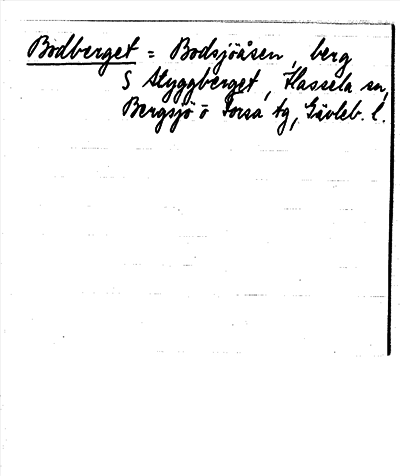 Bodberget = Bodsjöåsen, berg
S Styggberget, Hassela sn,
Bergsjö o Forsa tg, Gävleb. l.